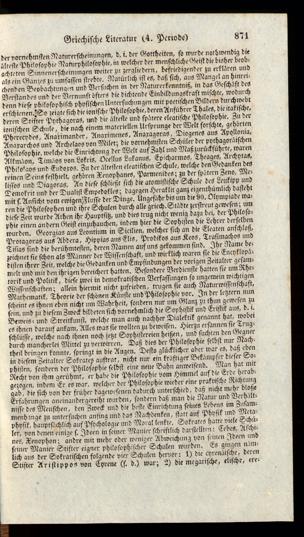 Griechische Literatur (4. Periode) 871
der vornehmsten Naturerscheinungen, d. i. der Gottheiten, so wurde nothwendig die
älteste Philosophie Naturphilosophie, in welcher der menschliche Geist die bisher beob-
achteten Sinnenerscheinungen weiter zu zergliedern, befriedigender zu erklären und
als ein Ganzes zu umfassen strebte. Natürlich ist es, daß sich, aus Mangel an hinrei-
chenden Beobachtungen und Versuchen in der Naturkenntniß, in das Geschäft des
Verstandes und der Vernunft öfters die dichtende Einbildungskraft mischte, wodurch
denn diese philosophisch physischen Untersuchungen mit poetischen Bildern durchwebt
erschienen. So zeigt sich die ionische Philosophie, deren Anführer Thales, die italische,
deren Stifter Pythagoras, und die ältere und spätere eleatische Philosophie. Zu der
ionischen Schule, die nach einem materiellen Ursprunge der Welt forschte, gehören
Pherecydes, Anaximander, Anaximenes, Anaxagoras, Diogenes aus Apollonia,
Anaxarchus und Archelaos von Milet; die vornehmsten Schüler der pythagorischen
Philosophie, welche die Einrichtung der Welt auf Zahl und Maß zurückführte, waren
Alkmäon, Timäos von Lokris, Ocellus Lukanus, Epicharmos, Theages, Archytas,
Philolaos und Eudoxos. Zu der ältesten eleatischen Schule, welche den Gedanken des
reinen Seins festhielt, gehören Xenophanes, Parmenides; zu der spätern Zeno, Me-
lissos und Diagoras. An diese schließen sich die atomistische Schule des Leukipp und
Demokrit und der Dualist Empedokles; dagegen Heraklit ganz eigenthümlich dasteht
mit s. Ansicht vom ewigen Flusse der Dinge. Ungefähr bis um die 90. Olympiade wa-
ren die Philosophen und ihre Schulen durch alle griech. Städte zerstreut gewesen; um
diese Zeit wurde Athen ihr Hauptsitz, und dies trug nicht wenig dazu bei, der Philoso-
phie einen andern Geist einzuhauchen, indem hier die Sophisten die Lehrer derselben
wurden. Gorgias aus Leontium in Sicilien, welcher sich an die Eleaten anschloß,
Protagoras aus Abdera, Hippias aus Elis, Prodikos aus Keos, Trasimachos und
Tisias sind die berühmtesten, deren Namen auf uns gekommen sind. Ihr Name be-
zeichnet sie schon als Männer der Wissenschaft, und wirklich waren sie die Encyklopä-
disten ihrer Zeit, welche die Gedanken und Empfindungen der vorigen Zeitalter gesam-
melt und mit den ihrigen bereichert hatten. Besondere Verdienste hatten sie um Rhe-
torik und Politik, diese zwei in demokratischen Verfassungen so ungemein wichtigen
Wissenschaften; allein hiermit nicht zufrieden, trugen sie auch Naturwissenschaft,
Mathematik, Theorie der schönen Künste und Philosophie vor. In der letztern nun
scheint es ihnen eben nicht um Wahrheit, sondern nur um Glanz zu thun gewesen zu
sein, und zu diesem Zweck bildeten sich vornehmlich die Sophistik und Eristik aus, d. i.
Beweis- und Streitkunst, welche man auch nachher Dialektik genannt hat, wobei
es ihnen darauf ankam, Alles was sie wollten zu beweisen. Hierzu ersannen sie Trug-
schlüsse, welche noch ihnen noch jetzt Sophistereien heißen, und suchten den Gegner
durch mancherlei Mittel zu verwirren. Daß dies der Philosophie selbst nur Nach-
theil bringen konnte, springt in die Augen. Desto glücklicher aber war es, daß eben
in diesem Zeitalter Sokrates auftrat, nicht nur ein kräftiger Bekämpfer dieser So-
phisten, sondern der Philosophie selbst eine neue Bahn anweisend. Man hat mit
Recht von ihm gerühmt, er habe die Philosophie vom Himmel auf die Erde herab-
gezogen, indem Er es war, welcher der Philosophie wieder eine praktische Richtung
gab. Sie sich von der früher dagewesenen dadurch unterschied, daß nicht mehr bloß
Erfahrungen aneinandergereiht wurden, sondern daß man die Natur und Verhält-
nisse des Menschen, den Zweck und die beste Einrichtung seines Lebens im Zusam-
menhange zu untersuchen anfing und das Nachdenken, statt auf Physik und Meta-
physik, hauptsächlich auf Psychologie und Moral lenkte. Sokrates hatte viele Schü-
ler, von denen einige s. Ideen in seiner Manier schriftlich darstellten: Cebes, Aeschi-
nes, Xenophon; andre mit mehr oder weniger Abweichung von seinen Ideen und
seiner Manier Stifter eigner philosophischer Schulen wurden. Es gingen näm-
lich aus der Sokratischen folgende vier Schulen hervor: 1) die cyrenaische, deren
Stifter Aristippos von Cyrene (s. d.) war; 2) die megarische, elische, ere-